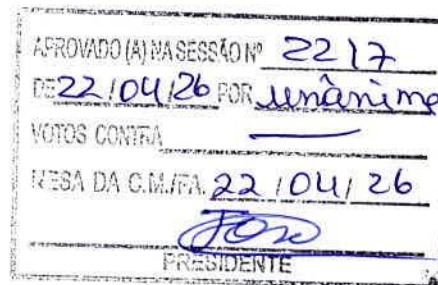 APROVADO (A) NA SESSÃO Nº 2217
DE 22/04/26 POR unânime
VOTOS CONTRA
MESA DA C.M./FA. 22/04/26
PRESIDENTE